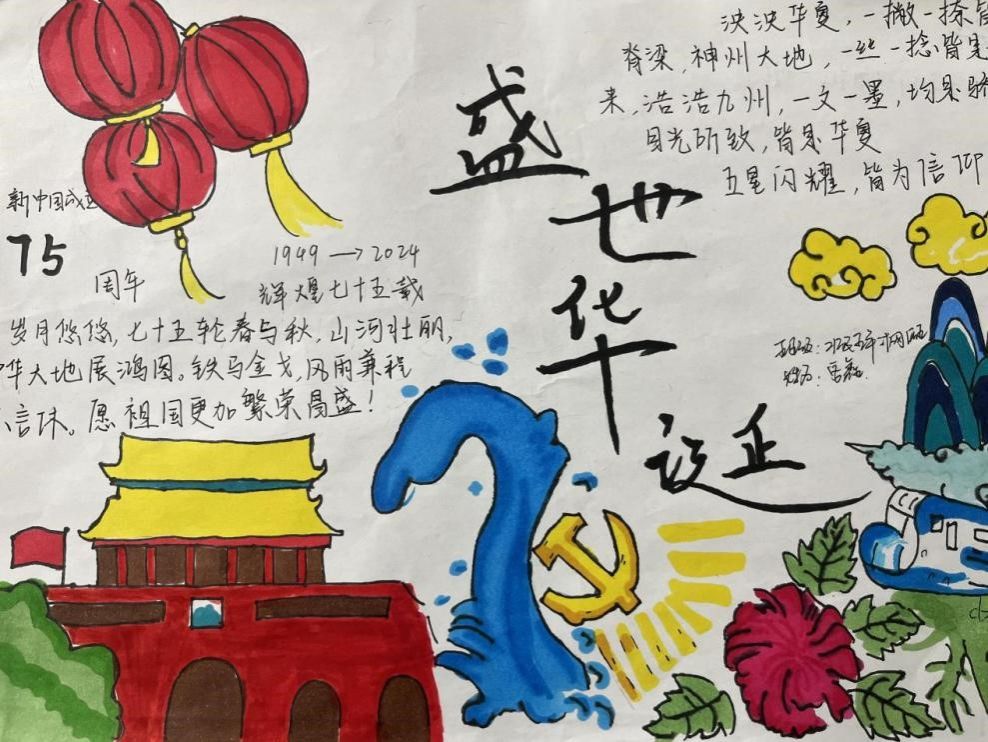 泱泱华夏，一撇一捺皆
脊梁，神州大地，一丝一捻皆是
来，浩浩九州，一文一墨，均是骄
目光所致，皆是华夏
五星闪耀，皆为信仰
盛世华诞
新中国成立
75
周年
1949 → 2024
辉煌七十五载
岁月悠悠，七十五轮春与秋，山河壮丽，
华大地展鸿图。铁马金戈，风雨兼程
愿祖国更加繁荣昌盛！
班级：